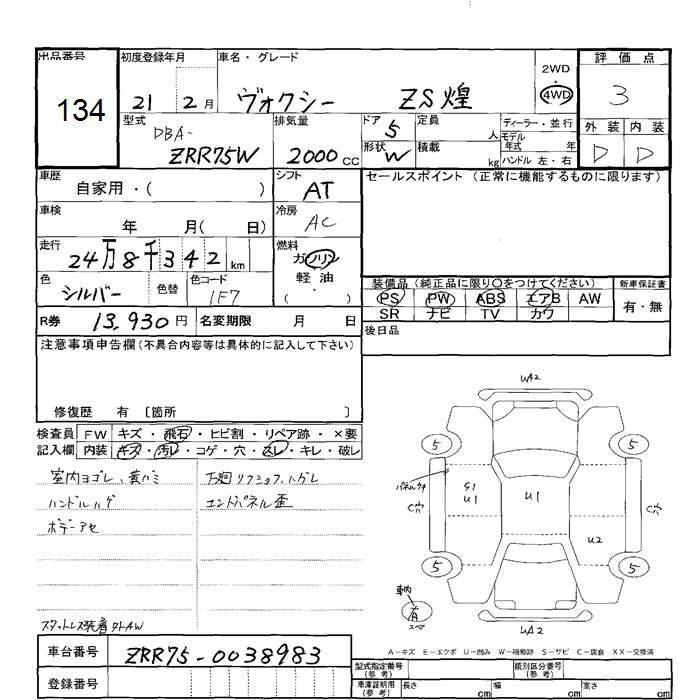 出品番号
134
初度登録年月
21 2月
車名・グレード
ヴォクシー ZS煌
2WD
・
4WD
評価点
3
外装 内装
D D
型式
DBA-
ZRR75W
排気量
2000 CC
ドア
5
形状
W
定員
人
積載
kg
ディーラー・並行
モデル
年式 年
ハンドル 左・右
車歴
自家用・( )
シフト
AT
セールスポイント (正常に機能するものに限ります)
車検
年 月( 日)
冷房
AC
走行
24万8千342 km
燃料
ガソリン
軽油
・( )
色
シルバー
色替
色コード
1F7
装備品(純正品に限り○をつけてください)
PS PW ABS エアB AW
SR ナビ TV カワ
新車保証書
有・無
R券 13,930円
名変期限 月 日
後日品
注意事項申告欄(不具合内容等は具体的に記入して下さい)
修復歴 有 〔箇所 〕
検査員
記入欄
FW キズ・飛石・ヒビ割・リペア跡・×要
内装 キズ・汚レ・コゲ・穴・スレ・キレ・破レ
室内ヨゴレ、
ハンドルハゲ
ボデーアセ
エンドパネル歪
スタットレス装着
車台番号
ZRR75-0038983
登録番号
UA2
5 5
パネルキ
C穴
G1
U1
U1
C穴
U2
5 5
車内
有
スペア
UA2
A-キズ E-エクボ U-凹み W-補修跡 S-サビ C-腐食 XX-交換済
型式指定番号
(参考)
類別区分番号
(参考)
車庫証明用
(参考)
長さ cm 幅 cm 高さ cm